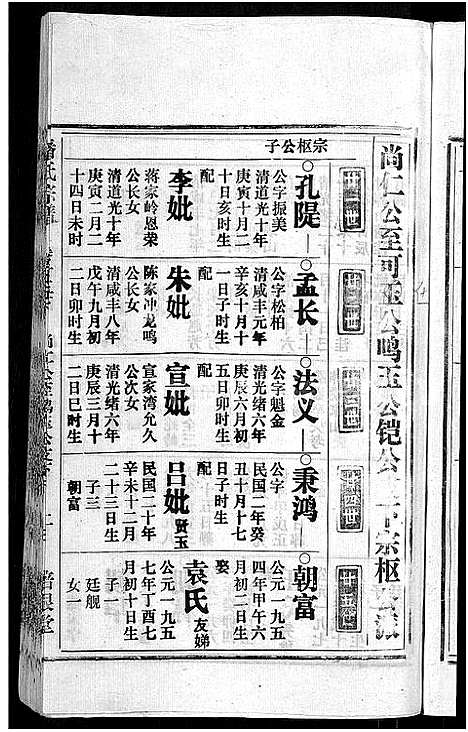 尚仁公至可玉公鸣玉公铠公
宗枢公子
廿一世
孔隄
公字振美
清道光十年
庚寅十月二
十日亥时生
配
李妣
蒋家岭恩荣
公长女
清道光十年
庚寅二月二
十四日未时
孟长
公字松柏
清咸丰元年
辛亥十月十
一日子时生
配
朱妣
陈家冲龙鸣
公长女
清咸丰八年
戊午九月初
二日卯时生
法义
公字魁金
清光绪六年
庚辰六月初
五日卯时生
配
宣妣
宣家湾允久
公次女
清光绪六年
庚辰三月十
二日巳时生
廿四世
秉鸿
公字
民国二年癸
丑十月十七
日子时生
配
吕妣贤玉
民国二十年
辛未十二月
二十三日生
子三
朝富
廿五世
朝富
公元一九五
四年甲午六
月初二日生
娶
袁氏友娣
公元一九五
七年丁酉七
月初十日生
子一
廷舰
女一